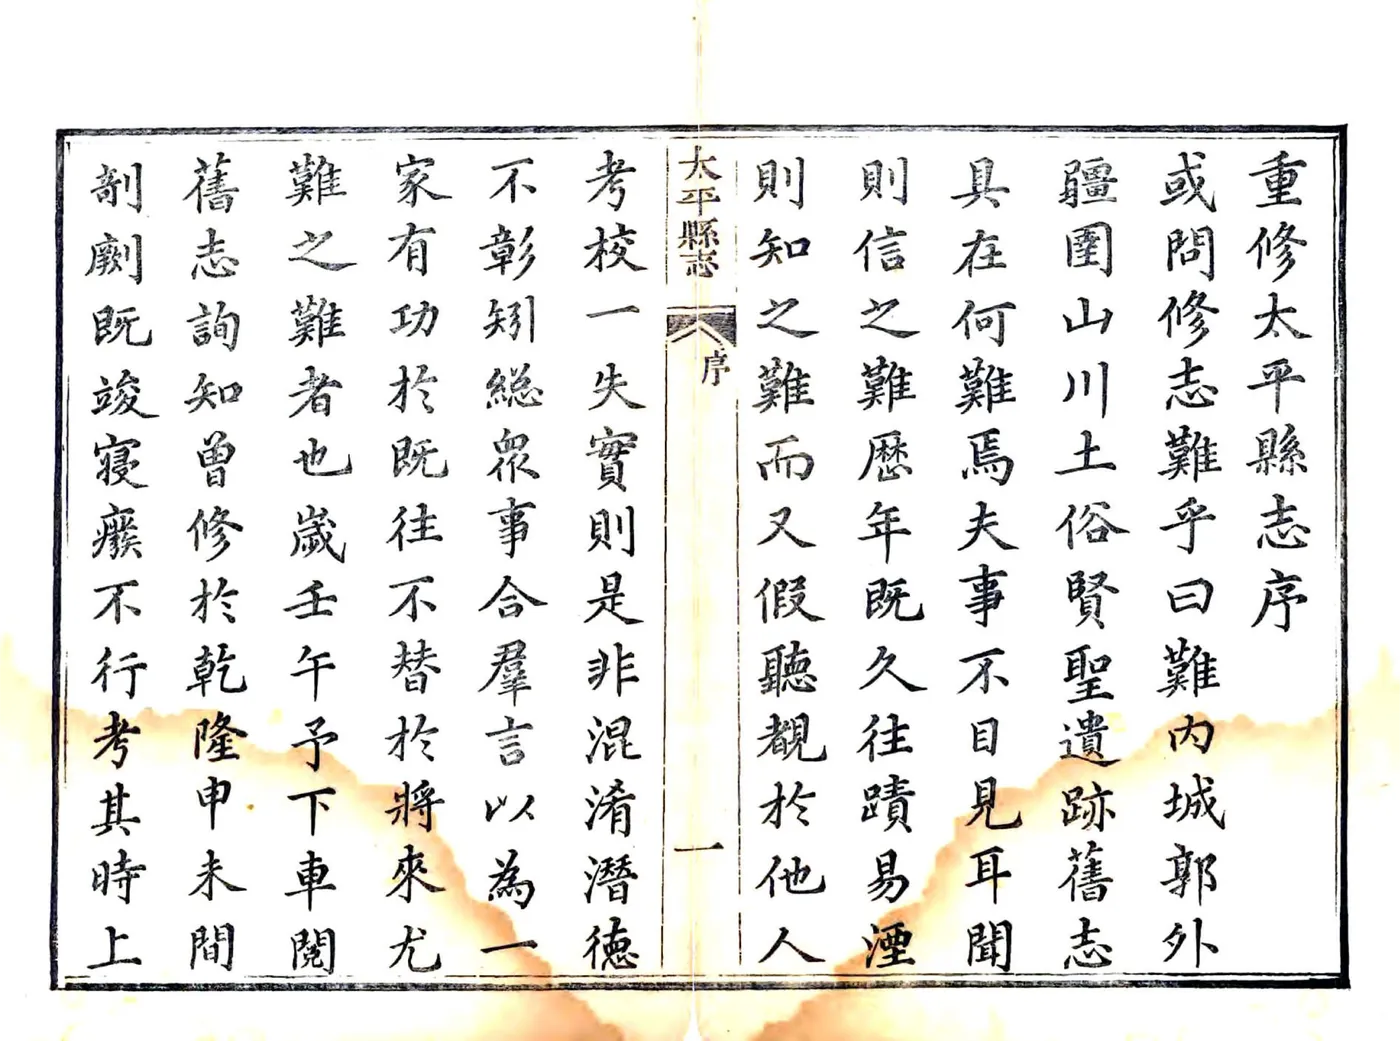 重修太平縣志序
或問修志難乎曰難內城郭外
疆圉山川土俗賢聖遺跡舊志
具在何難焉夫事不目見耳聞
則信之難歷年既久往蹟易湮
則知之難而又假聽覩於他人
太平縣志
序
一
考校一失實則是非混淆潛德
不彰矧總衆事合羣言以為一
家有功於既往不替於將來尤
難之難者也歲壬午予下車閱
舊志詢知曾修於乾隆申未間
剞劂既竣寢癈不行考其時上